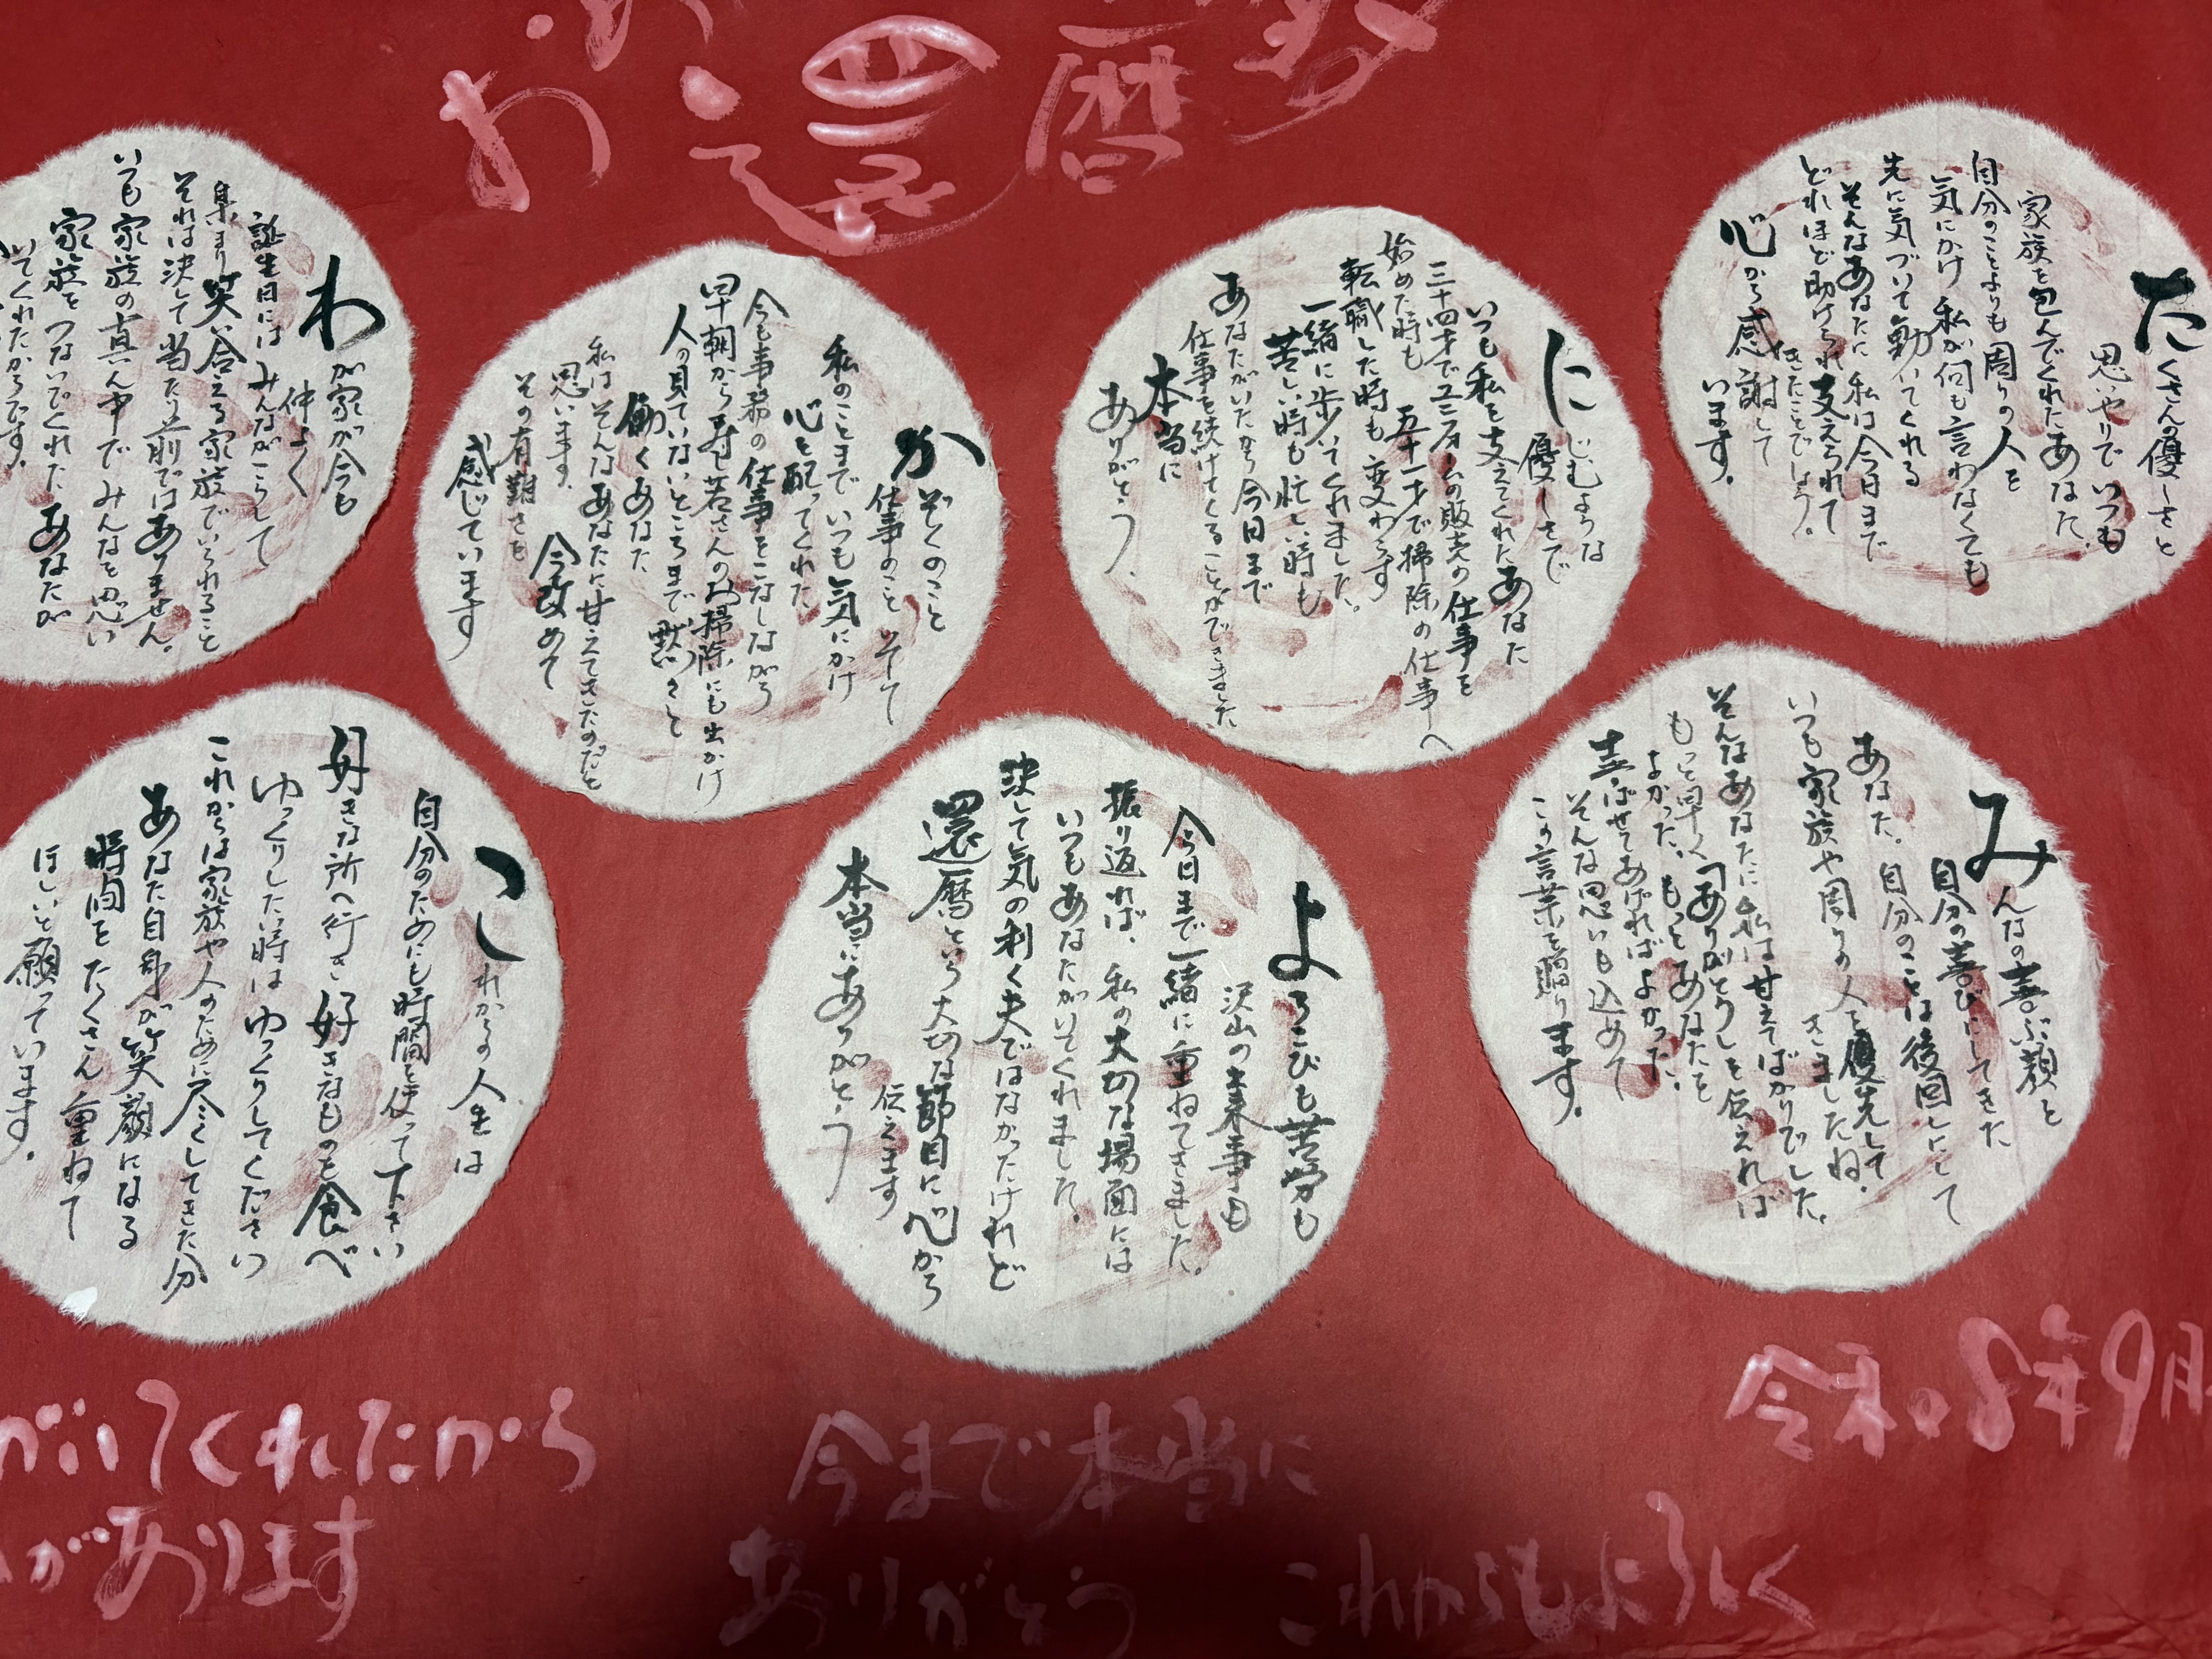 お還暦
たくさんの優しさと
思いやりで いつも
家族を包んでくれたあなた。
自分のことよりも周りの人を
気にかけ 私が何も言わなくても
先に気づいて動いてくれる
そんなあなたに 私は今日まで
どれほど助けられ支えられて
きたことでしょう。
心から感謝して
います。
にじむような
優しさで
いつも私を支えてくれたあなた
三十四才でユニフォームの販売の仕事を
始めた時も 五十一才で掃除の仕事へ
転職した時も 変わらず
一緒に歩いてくれました。
苦しい時も忙しい時も
あなたがいたから今日まで
仕事を続けてくることができました
本当に
ありがとう。
かぞくのこと
仕事のこと そして
私のことまで いつも気にかけ
心を配ってくれた
今も事務の仕事をこなしながら
早朝から寿し若さんのお掃除にも出かけ
人の見ていないところまで 黙々と
働くあなた
私はそんなあなたに甘えてきたのだと
思います。 今改めて
その有難さを
感じています
わが家が今も
仲よく
誕生日には みんながこうして
集まり 笑い合える家族でいられること
それは決して当たり前ではありません。
いつも家族の真ん中で みんなを思い
家族をつないでくれた あなたが
いてくれたからです。
みんなの喜ぶ顔を
自分の喜びにしてきた
あなた。 自分のことは後回しにして
いつも家族や周りの人を優先して
きましたね。
そんなあなたに 私は甘えてばかりでした。
もっと早く「ありがとう」を伝えれば
よかった。もっとあなたを
喜ばせてあげればよかった。
そんな思いも込めて
この言葉を贈ります。
よろこびも苦労も
沢山の出来事も
今日まで一緒に重ねてきました。
振り返れば、私の大切な場面には
いつもあなたがいてくれました。
決して気の利く夫ではなかったけれど
還暦という大切な節目に心から
伝えます
本当にありがとう
これからの人生は
自分のためにも時間を使って下さい
好きな所へ行き 好きなものを食べ
ゆっくりしたい時は ゆっくりしてください
これからは家族や人のために尽くしてきた分
あなた自身が笑顔になる
時間をたくさん重ねて
ほしいと願っています。
令和8年9月
がいてくれたから
があります
今まで本当に
ありがとう
これからもよろしく